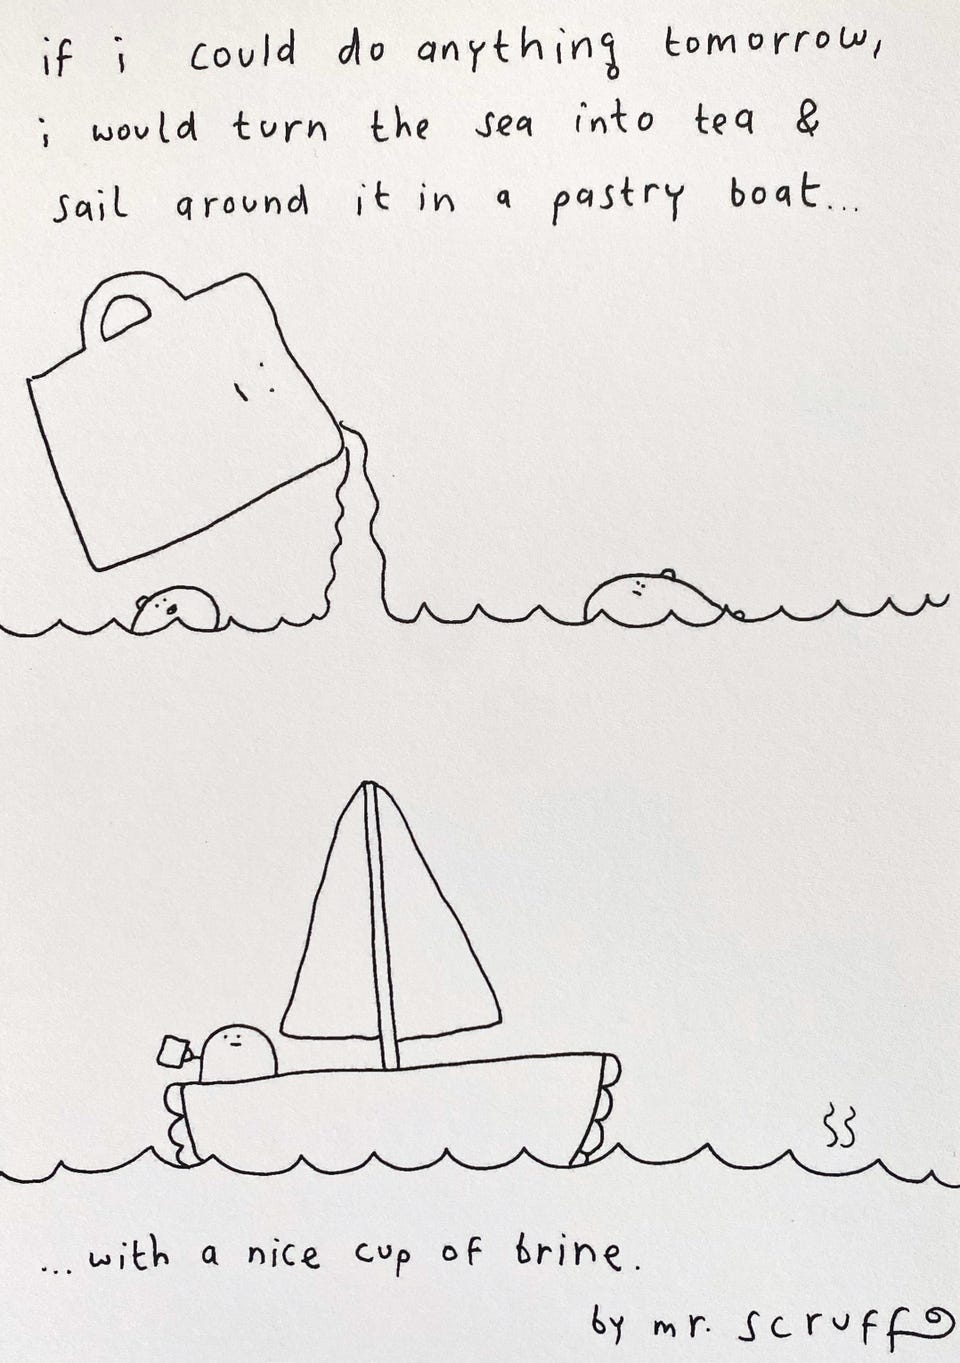 if i could do anything tomorrow,
i would turn the sea into tea &
sail around it in a pastry boat...
...with a nice cup of brine.
by mr. scruff